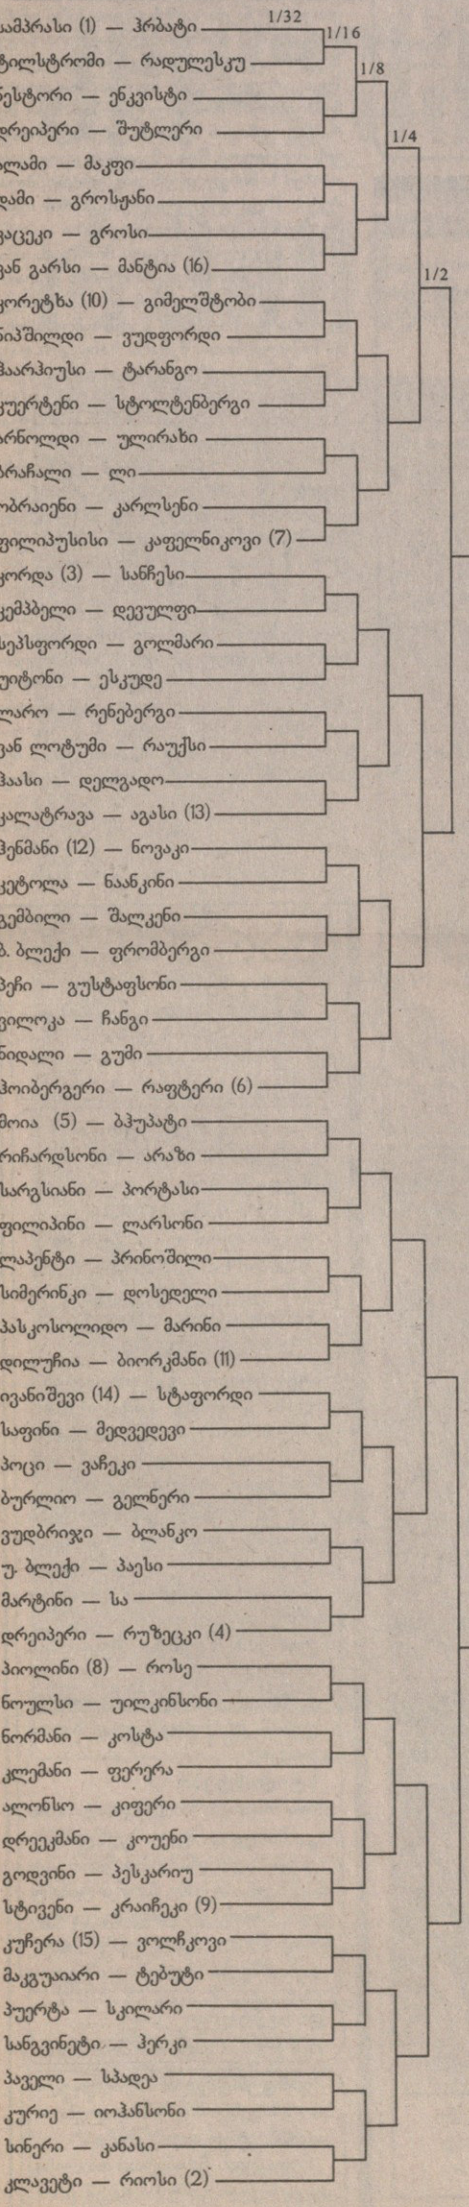 სამპრასი (1) — ჰრბატი 1/32
ტილსტრომი — რადულესკუ 1/16
ნესტორი — ენკვისტი 1/8
დრეიპერი — შუტლერი
ალამი — მაკფი 1/4
დამი — გროსჟანი
ვაცეკი — გროსი
ვან გარსი — მანტია (16) 1/2
კორეტხა (10) — გიმელშტობი
ნიპშილდი — ვუდფორდი
ჰაარჰიუსი — ტარანგო
კუერტენი — სტოლტენბერგი
არნოლდი — ულირახი
ბრაჩალი — ლი
ობრაიენი — კარლსენი
ფილიპუსისი — კაფელნიკოვი (7)
კორდა (3) — სანჩესი
კემპბელი — დევულფი
სეპსფორდი — გოლმარი
უიტონი — ესკუდე
ლარო — რენებერგი
ვან ლოტუმი — რაუქსი
ჰაასი — დელგადო
კალატრავა — აგასი (13)
ჰენმანი (12) — ნოვაკი
კეტოლა — ნაანკინი
გემბილი — შალკენი
ბ. ბლექი — ფრომბერგი
პეჩი — გუსტაფსონი
ვილოკა — ჩანგი
ნიდალი — გუმი
ჰოიბერგერი — რაფტერი (6)
მოია (5) — ბჰუპატი
რიჩარდსონი — არაზი
სარგსიანი — პორტასი
ფილიპინი — ლარსონი
ლაპენტი — პრინოშილი
სიმერინკი — დოსედელი
პასკოსოლიდო — მარინი
დილუჩია — ბიორკმანი (11)
ივანიშევი (14) — სტაფორდი
საფინი — მედვედევი
პოცი — ვაჩეკი
ბურლიო — გელნერი
ვუდბრიჯი — ბლანკო
უ. ბლექი — პაესი
მარტინი — სა
დრეიპერი — რუზეცკი (4)
პიოლინი (8) — როსე
ნოულსი — უილკინსონი
ნორმანი — კოსტა
კლემანი — ფერერა
ალონსო — კიფერი
დრეეკმანი — კოუენი
გოდვინი — პესკარიუ
სტივენი — კრაიჩეკი (9)
კუჩერა (15) — ვოლჩკოვი
მაკგუაიარი — ტებუტი
პუერტა — სკილარი
სანგვინეტი — ჰერკი
პაველი — სპადეა
კურიე — იოჰანსონი
სინერი — კანასი
კლავეტი — რიოსი (2)